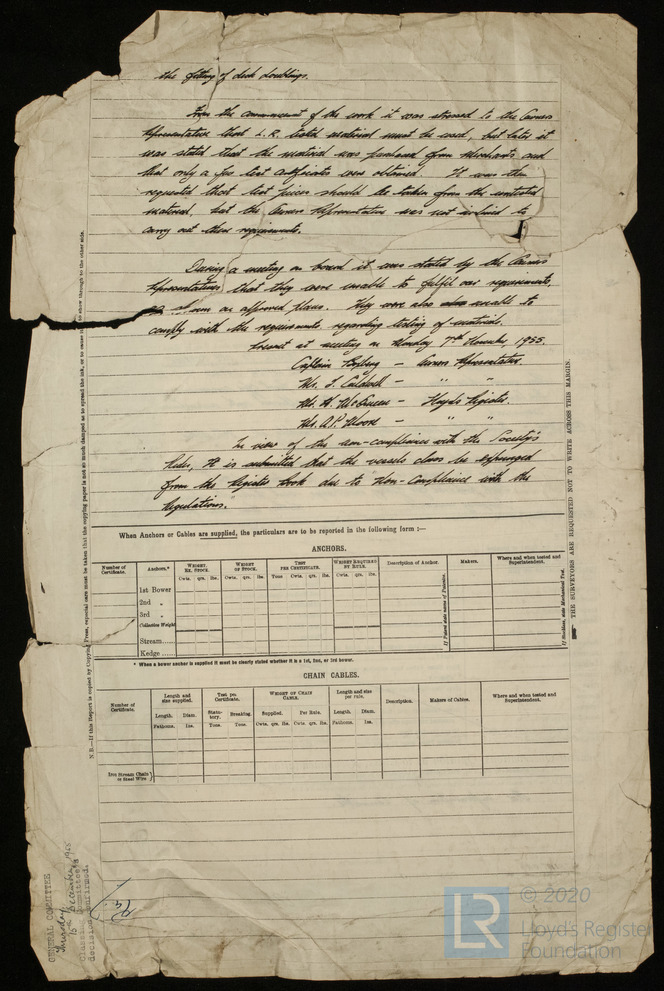 the fitting of deck doublings.
From the commencement of the work it was stressed to the Owners
Representative that L.R. tested material must be used, but later it
was stated that the material was purchased from Merchants and
that only a few test certificates were obtained. It was then
requested that test pieces should be taken from the untested
material, but the Owners Representative was not inclined to
carry out these requirements.
During a meeting on board it was stated by the Owners
Representatives that they were unable to fulfil our requirements,
as shown on approved plans. They were also unable to
comply with the requirements regarding testing of material.
Present at meeting on Monday 7th November 1955.
Captain - Owners Representative.
Mr. J. Caldwell - " "
Mr. H. McQueen - Lloyd's Register.
Mr. A.P. Moore - " "
In view of the non-compliance with the Society's
Rules, it is submitted that the vessels class be expunged
from the Register Book due to Non-Compliance with the
Regulations.
When Anchors or Cables are supplied, the particulars are to be reported in the following form :—
ANCHORS.
Number of Certificate.
Anchors.*
WEIGHT. EX. STOCK.
WEIGHT OF STOCK.
TEST PER CERTIFICATE.
WEIGHT REQUIRED BY RULE.
Description of Anchor.
Makers.
Where and when tested and Superintendent.
Cwts. qrs. lbs.
Cwts. qrs. lbs.
Tons Cwts. qrs. lbs.
Cwts. qrs. lbs.
1st Bower
2nd "
3rd "
Collective Weight
Stream
Kedge
If Patent state name of Patentee.
If Stockless, state Mechanical Test.
* When a bower anchor is supplied it must be clearly stated whether it is a 1st, 2nd, or 3rd bower.
CHAIN CABLES.
Number of Certificate.
Length and size supplied.
Test per Certificate.
WEIGHT OF CHAIN CABLE.
Length and size per rule.
Description.
Makers of Cables.
Where and when tested and Superintendent.
Length. Diam.
Statutory. Breaking.
Supplied. Per Rule.
Length. Diam.
Fathoms. Ins.
Tons. Tons.
Cwts. qrs. lbs. Cwts. qrs. lbs.
Fathoms. Ins.
Iron Stream Chain or Steel Wire
THE SURVEYORS ARE REQUESTED NOT TO WRITE ACROSS THIS MARGIN.
N.B.—If this Report is copied by Copying Press, especial care must be taken that the copying paper is not so much damped as to spread the ink, or to cause it to show through to the other side.
GENERAL COMMITTEE
Thursday,
December 1955
Classing Committee's
decision confirmed.
LR
© 2020
Lloyd's Register
Foundation